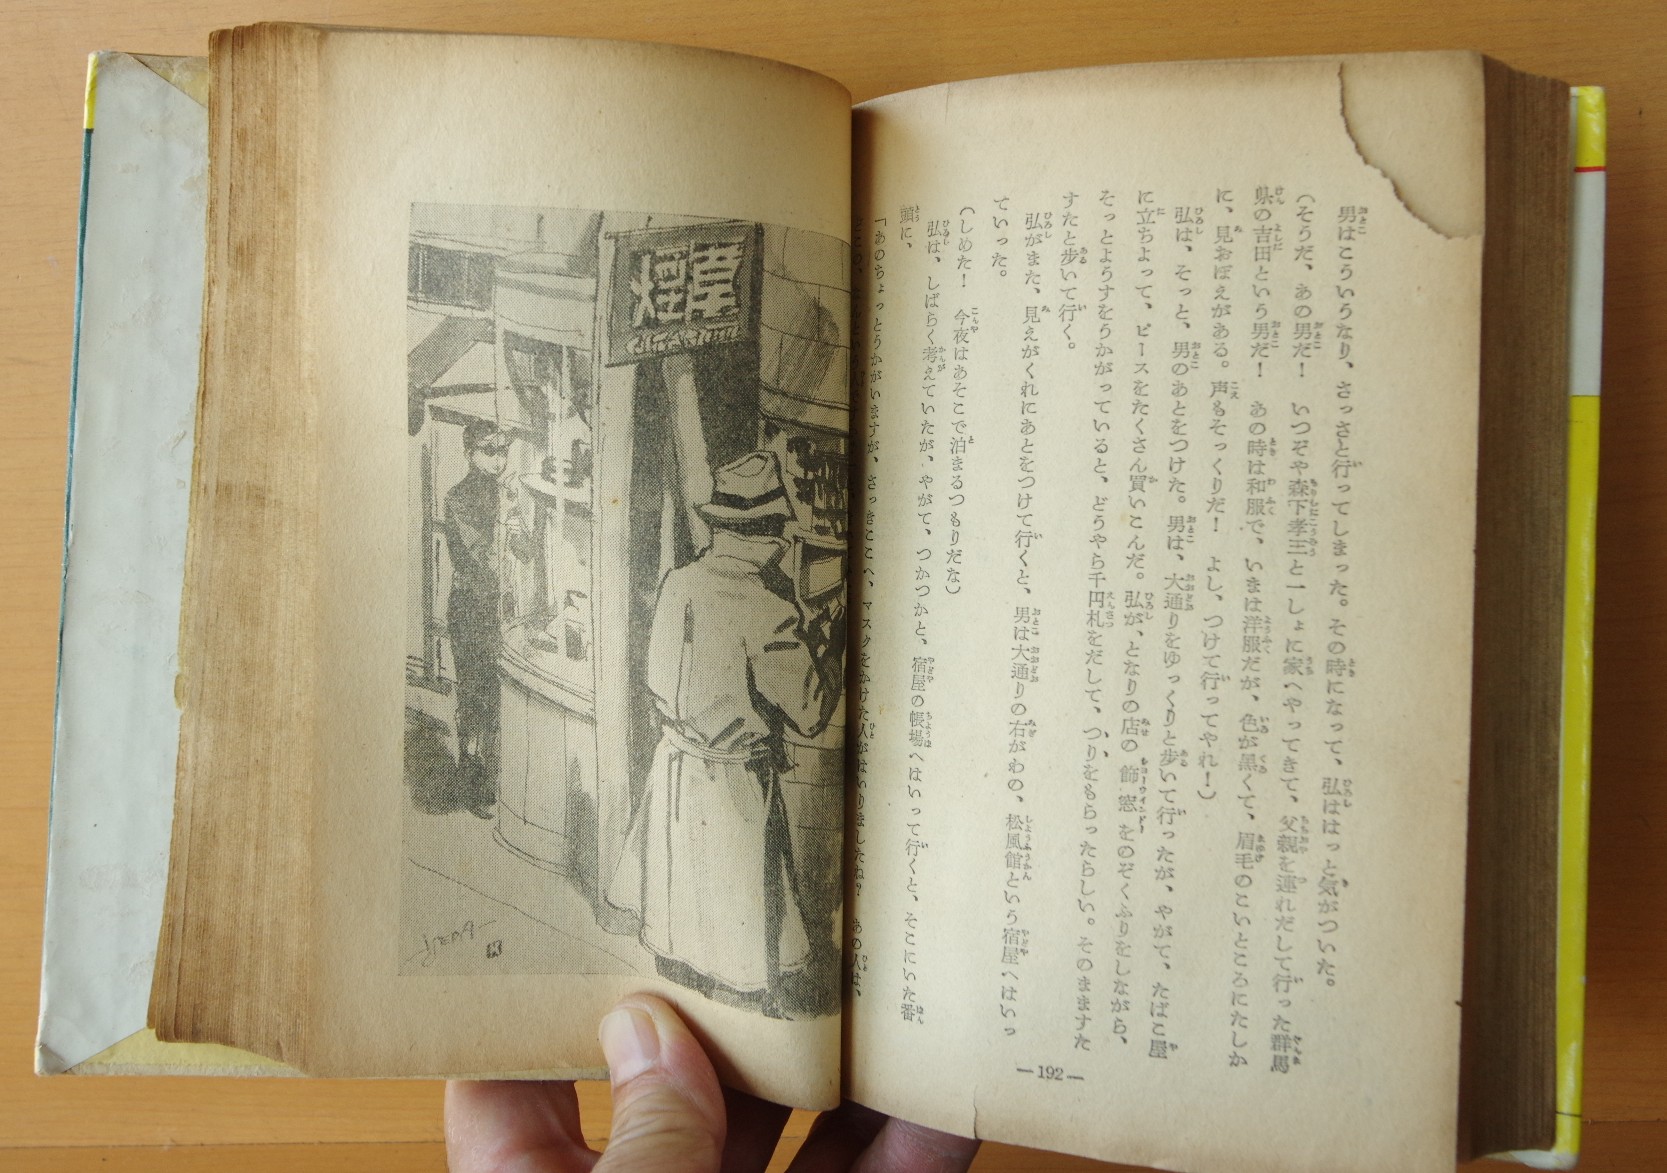 男はこういうなり、さっさと行ってしまった。その時になって、弘ははっと気がついた。
(そうだ、あの男だ! いつぞや森下孝三と一しょに家へやってきて、父親を連れだして行った群馬
県の吉田という男だ! あの時は和服で、いまは洋服だが、色が黒くて、眉毛のこいところにたしか
に、見おぼえがある。声もそっくりだ! よし、つけて行ってやれ!)
弘は、そっと、男のあとをつけた。男は、大通りをゆっくりと歩いて行ったが、やがて、たばこ屋
に立ちよって、ピースをたくさん買いこんだ。弘が、となりの店の飾窓をのぞくふりをしながら、
そっとようすをうかがっていると、どうやら千円札をだして、つりをもらったらしい。そのまますた
すたと歩いて行く。
弘がまた、見えがくれにあとをつけて行くと、男は大通りの右がわの、松風館という宿屋へはいっ
ていった。
(しめた! 今夜はあそこで泊まるつもりだな)
弘は、しばらく考えていたが、やがて、つかつかと、宿屋の帳場へはいって行くと、そこにいた番
頭に、
「あのちょっとうかがいますが、さっきここへ、マスクをかけた人がはいりましたね? あの人は、
—192—
煙草
CIGARETTE